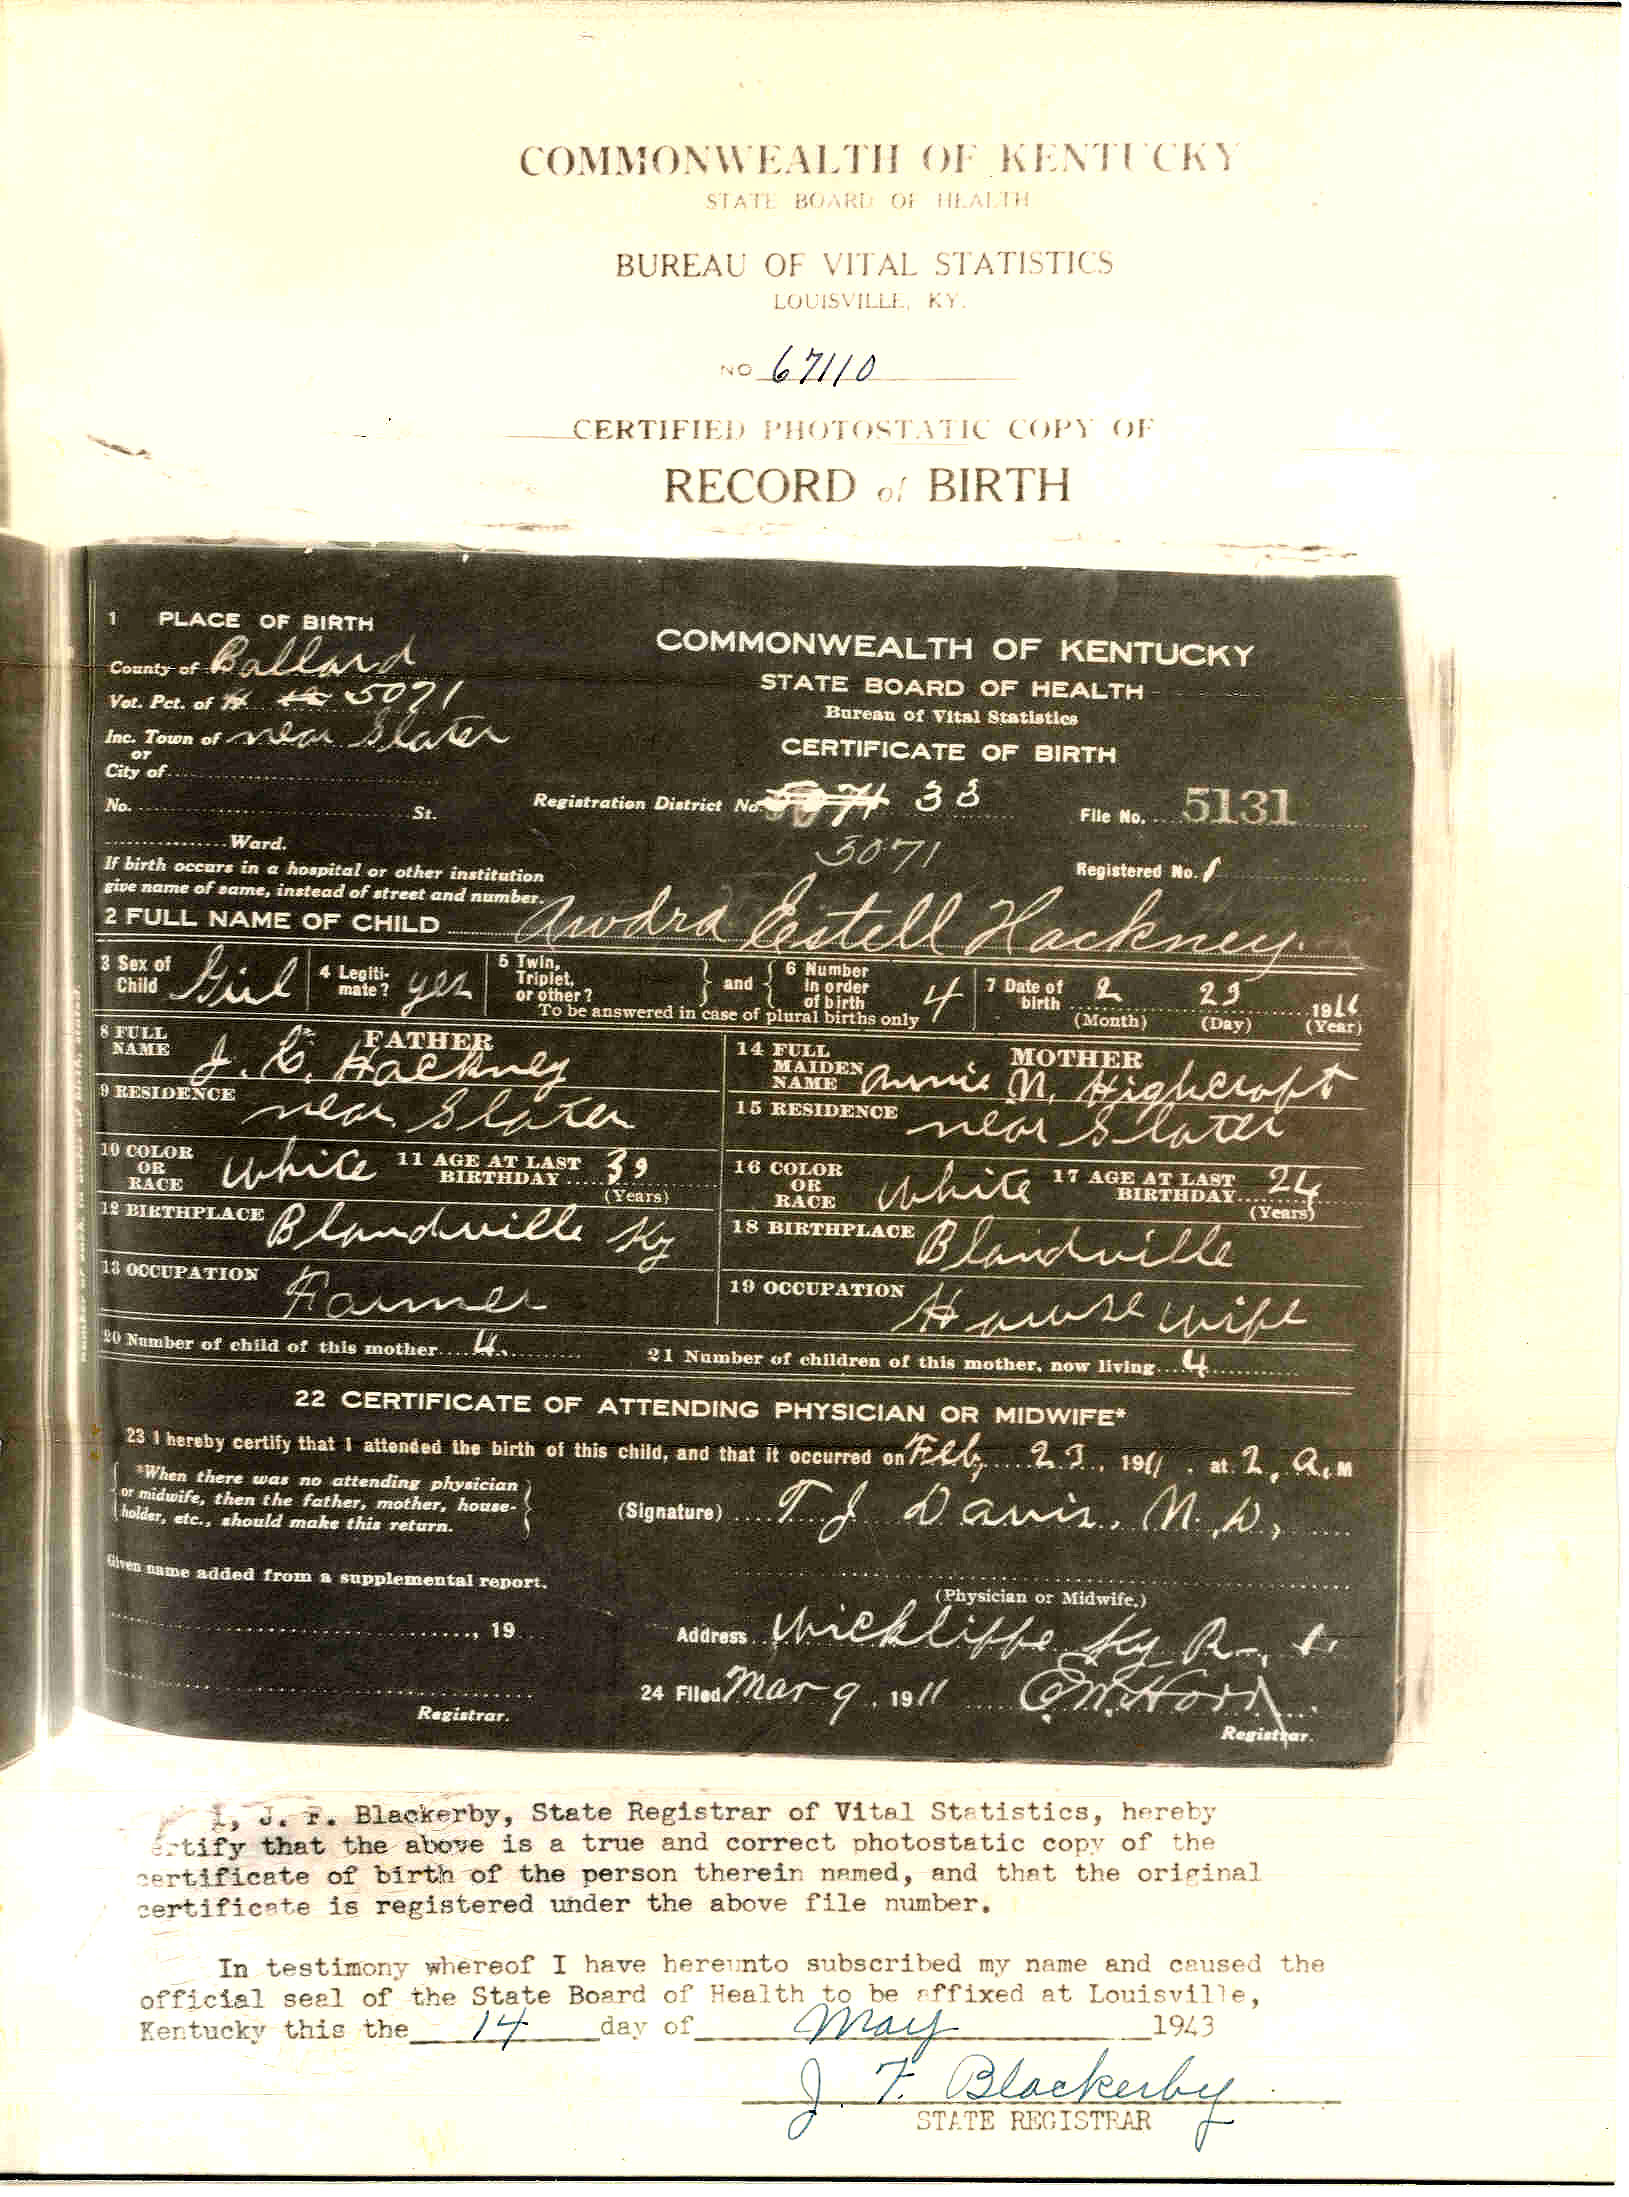 COMMONWEALTH OF KENTUCKY
STATE BOARD OF HEALTH
BUREAU OF VITAL STATISTICS
LOUISVILLE, KY.
NO 67110
CERTIFIED PHOTOSTATIC COPY OF
RECORD of BIRTH
1 PLACE OF BIRTH
County of Ballard
Vot. Pct. of 5071
Inc. Town of near Slater
or
City of
No. St.
Ward.
If birth occurs in a hospital or other institution
give name of same, instead of street and number.
COMMONWEALTH OF KENTUCKY
STATE BOARD OF HEALTH
Bureau of Vital Statistics
CERTIFICATE OF BIRTH
Registration District No. 5071 33
5071
File No. 5131
Registered No. 1
2 FULL NAME OF CHILD Awdra Estell Hackney
3 Sex of Child Girl
4 Legitimate? yes
5 Twin, Triplet, or other?
and
6 Number in order of birth 4
To be answered in case of plural births only
7 Date of birth 2 23 1911
(Month) (Day) (Year)
FATHER
8 FULL NAME J. C. Hackney
9 RESIDENCE near Slater
10 COLOR OR RACE White
11 AGE AT LAST BIRTHDAY 39
(Years)
12 BIRTHPLACE Blandville Ky
13 OCCUPATION Farmer
MOTHER
14 FULL MAIDEN NAME Annie N. Highcroft
15 RESIDENCE near Slater
16 COLOR OR RACE White
17 AGE AT LAST BIRTHDAY 24
(Years)
18 BIRTHPLACE Blandville
19 OCCUPATION House wife
20 Number of child of this mother 4
21 Number of children of this mother, now living 4
22 CERTIFICATE OF ATTENDING PHYSICIAN OR MIDWIFE*
23 I hereby certify that I attended the birth of this child, and that it occurred on Feb, 23, 1911. at 2, A, M
*When there was no attending physician
or midwife, then the father, mother, house-
holder, etc., should make this return.
(Signature) T J Davis, M. D,
(Physician or Midwife.)
Given name added from a supplemental report.
, 19
Registrar.
Address Wickliffe Ky R-, 1.
24 Filed Mar 9, 1911 E.W.
Registrar.
I, J. F. Blackerby, State Registrar of Vital Statistics, hereby
certify that the above is a true and correct photostatic copy of the
certificate of birth of the person therein named, and that the original
certificate is registered under the above file number.
In testimony whereof I have hereunto subscribed my name and caused the
official seal of the State Board of Health to be affixed at Louisville,
Kentucky this the 14 day of May 1943
J. F. Blackerby
STATE REGISTRAR